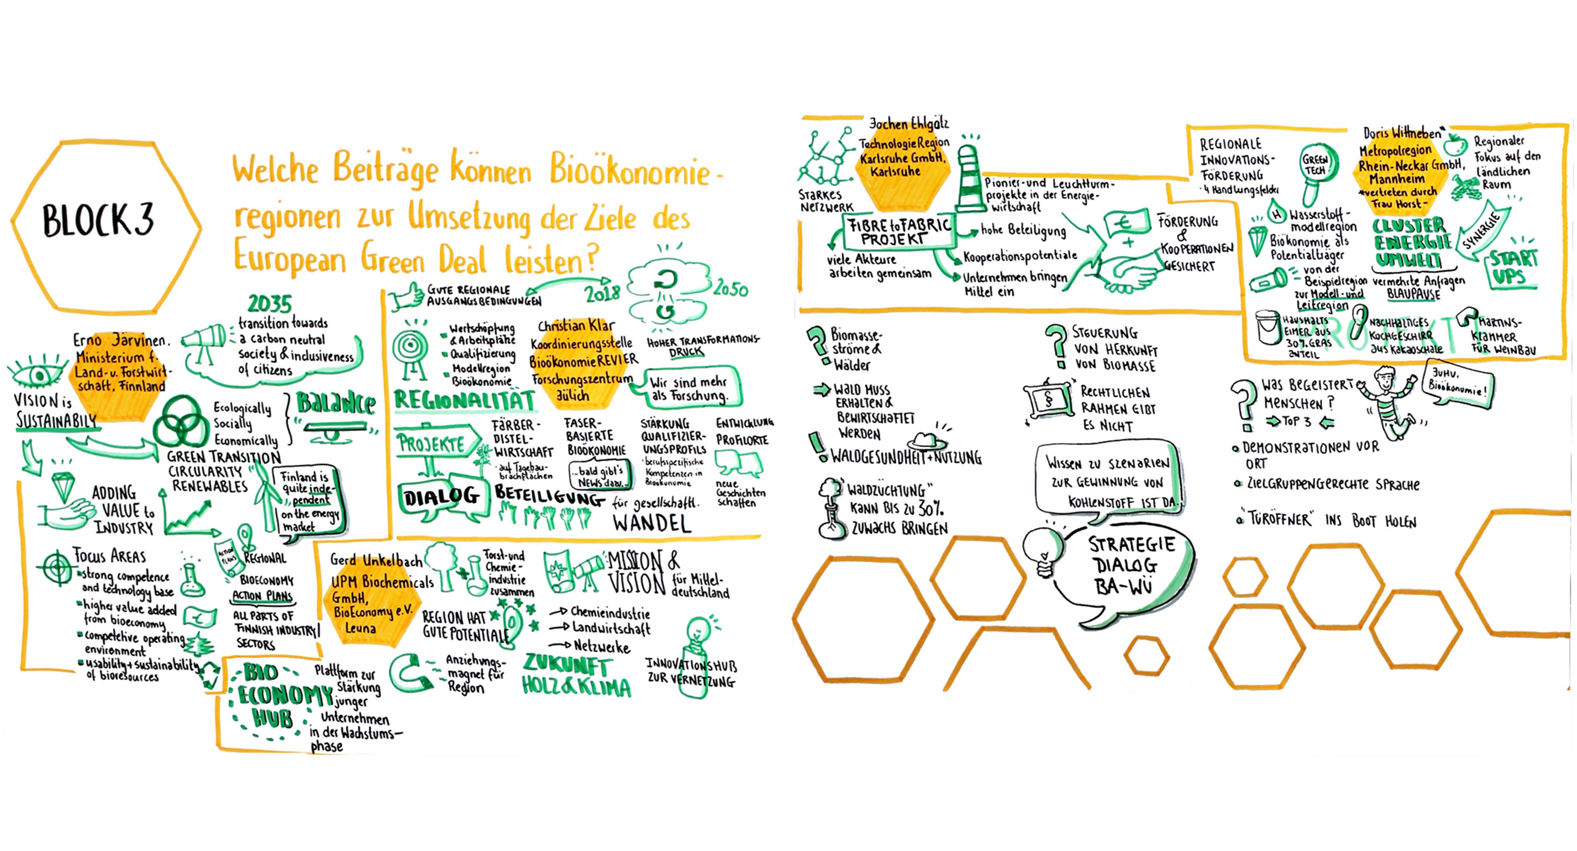 BLOCK 3
Welche Beiträge können Bioökonomie-
regionen zur Umsetzung der Ziele des
European Green Deal leisten?
Erno Järvinen.
Ministerium f.
Land- u. Forstwirt-
schaft, Finnland
2035
transition towards
a carbon neutral
society & inclusiveness
of citizens
VISION is
SUSTAINABILY
Ecologically
Socially
Economically
BALANCE
GREEN TRANSITION
CIRCULARITY
RENEWABLES
Finland is
quite inde-
pendent
on the energy
market
ADDING
VALUE to
INDUSTRY
FOCUS AREAS
strong competence
and technology base
higher value added
from bioeconomy
competetive operating
environment
usability + sustainability
of bioresources
ACTION
PLANS
REGIONAL
BIOECONOMY
ACTION PLANS
ALL PARTS OF
FINNISH INDUSTRY/
SECTORS
GUTE REGIONALE
AUSGANGSBEDINGUNGEN
2018
2050
HOHER TRANSFORMATIONS-
DRUCK
Wertschöpfung
& Arbeitsplätze
Qualifizierung
Modellregion
Bioökonomie
Christian Klar
Koordinierungsstelle
BioökonomieREVIER
Forschungszentrum
Jülich
Wir sind mehr
als Forschung.
REGIONALITÄT
PROJEKTE
DIALOG
FÄRBER-
DISTEL-
WIRTSCHAFT
auf Tagebau-
brachflächen
FASER-
BASIERTE
BIOÖKONOMIE
...bald gibt's
NEWS dazu...
STÄRKUNG
QUALIFIZIER-
UNGSPROFILS
berufsspezifische
Kompetenzen in
Bioökonomie
ENTWICKLUNG
PROFILORTE
neue
Geschichten
schaffen
BETEILIGUNG
für gesellschaftl.
WANDEL
Gerd Unkelbach
UPM Biochemicals
GmbH,
BioEconomy e.V.
Leuna
Forst-und
Chemie-
industrie
zusammen
MISSION &
VISION für Mittel-
deutschland
REGION HAT
GUTE POTENTIALE
Chemieindustrie
Landwirtschaft
Netzwerke
Anziehungs-
magnet für
Region
ZUKUNFT
HOLZ & KLIMA
INNOVATIONSHUB
ZUR VERNETZUNG
BIO
ECONOMY
HUB
Plattform zur
Stärkung
junger
Unternehmen
in der Wachstums-
phase
Jochen Ehlgötz
TechnologieRegion
Karlsruhe GmbH,
Karlsruhe
STARKES
NETZWERK
FIBRE to FABRIC
PROJEKT
viele Akteure
arbeiten gemeinsam
Pionier- und Leuchtturm-
projekte in der Energie-
wirtschaft
hohe Beteiligung
Kooperationspotentiale
Unternehmen bringen
Mittel ein
€
+
FÖRDERUNG
&
KOOPERATIONEN
GESICHERT
REGIONALE
INNOVATIONS-
FÖRDERUNG
4 Handlungsfelder
GREEN
TECH
Doris Wittneben*
Metropolregion
Rhein-Neckar GmbH,
Mannheim
*vertreten durch
Frau Horst-
Regionaler
Fokus auf den
ländlichen
Raum
H
Wasserstoff-
modellregion
Biökonomie als
Potentialträger
von der
Beispielregion
zur Modell- und
Leitregion
CLUSTER
ENERGIE
UMWELT
vermehrte Anfragen
BLAUPAUSE
SYNERGIE
START
UPS
PROJEKT
HAUSHALTS
EIMER aus
30% GRAS
ANTEIL
NACHHALTIGES
KOCHGESCHIRR
aus KAKAOSCHALE
MARTINS-
KLAMMER
FÜR WEINBAU
Biomasse-
ströme &
Wälder
WALD MUSS
ERHALTEN &
BEWIRTSCHAFTET
WERDEN
WALDGESUNDHEIT + NUTZUNG
"WALDZÜCHTUNG"
KANN BIS ZU 30%
ZUWACHS BRINGEN
STEUERUNG
VON HERKUNFT
VON BIOMASSE
§
RECHTLICHEN
RAHMEN GIBT
ES NICHT
WISSEN ZU SZENARIEN
ZUR GEWINNUNG VON
KOHLENSTOFF IST DA.
STRATEGIE
DIALOG
BA-WÜ
WAS BEGEISTERT
MENSCHEN?
TOP 3
JUHU,
Bioökonomie!
DEMONSTRATIONEN VOR
ORT
ZIELGRUPPENGERECHTE SPRACHE
"TÜRÖFFNER" INS BOOT HOLEN